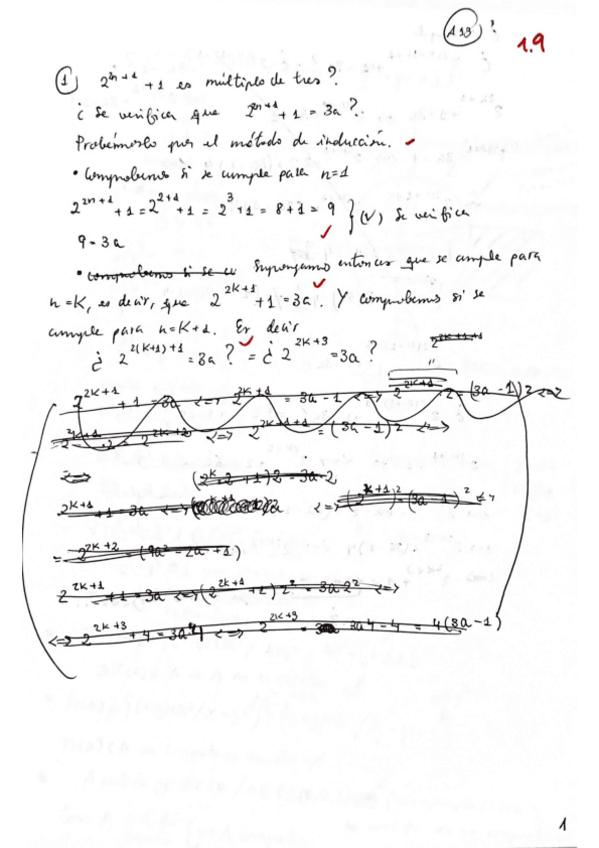 A19
1.9
1) 2^{2n+1} + 1 es múltiplo de tres?
¿ Se verifica que 2^{2n+1} + 1 = 3a?
Probémoslo por el método de inducción.
• Comprobemos si se cumple para n=1
2^{2n+1} + 1 = 2^{2+1} + 1 = 2^3 + 1 = 8 + 1 = 9 } (V) Se verifica
9 = 3a
• comprobemos si se cu Supongamos entonces que se cumple para
n = K, es decir, que 2^{2K+1} + 1 = 3a. Y comprobemos si se
cumple para n=K+1. Es decir
¿ 2^{2(K+1)+1} = 3a ? = ¿ 2^{2K+3} = 3a ?
2^{2K+1+1}
2^{2K+1} + 1 = 3a <=> 2^{2K+1} = 3a - 1 <=> 2^{2K+1} · 2 = (3a - 1) 2 <=>
<=> 2^{2K+1+1} = (3a - 1) 2 <=>
<=> (2^K · 2 + 1) 2 = 3a · 2
2^{2K+1} + 1 = 3a <=> <=> = (3a - 1)^2 <=>
= 2^{2K+2} = (9a^2 - 2a + 1)
2^{2K+1} + 1 = 3a <=> (2^{2K+1} + 1) 2^2 = 3a 2^2 <=>
<=> 2^{2K+3} + 4 = 3a 4 <=> 2^{2K+3} = 3a4 - 4 = 4(3a - 1)
1